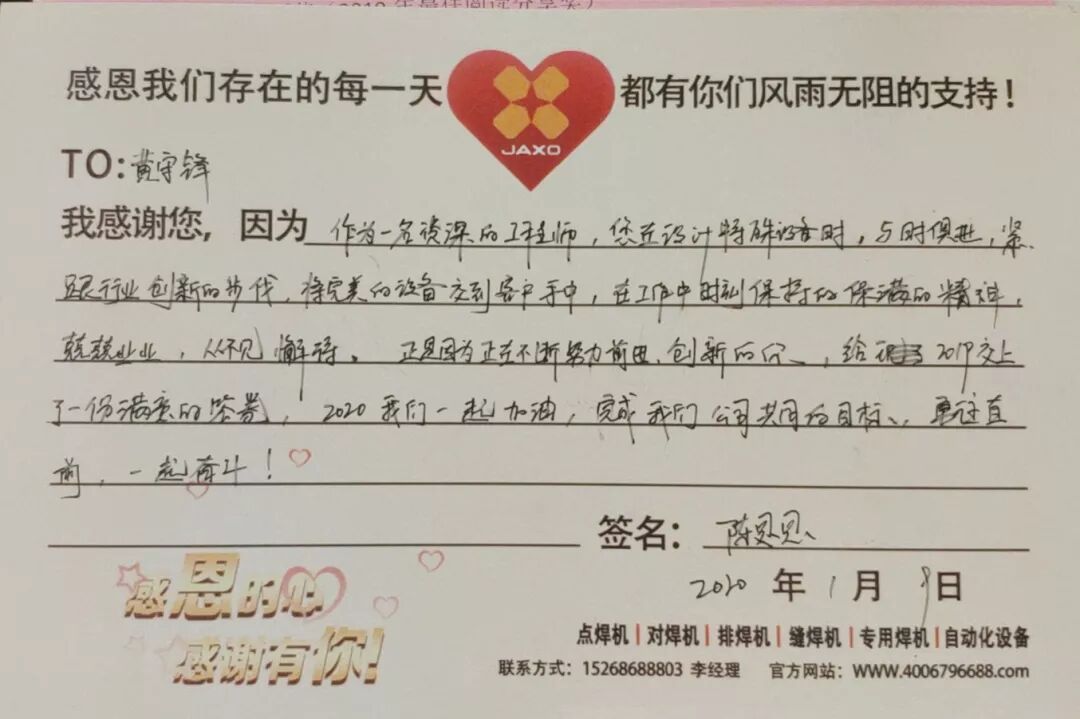 感恩我们存在的每一天
JAXO
都有你们风雨无阻的支持!
TO:黄守锋
我感谢您,因为 作为一名资深的工程师,您在设计特殊设备时,与时俱进,紧
跟行业创新的步伐,将完美的设备交到客户手中,在工作中时刻保持的保满的精神,
兢兢业业,从不见懈待。正是因为正在不断努力前进、创新的您,给 2019交上
了一份满意的答卷,2020我们一起加油,完成我们公司共同的目标,勇往直
前,一起奋斗!
签名: 陈恩
2020 年 1 月 9 日
感恩的心
感谢有你!
点焊机|对焊机|排焊机|缝焊机|专用焊机|自动化设备
联系方式:15268688803 李经理 官方网站:WWW.4006796688.com